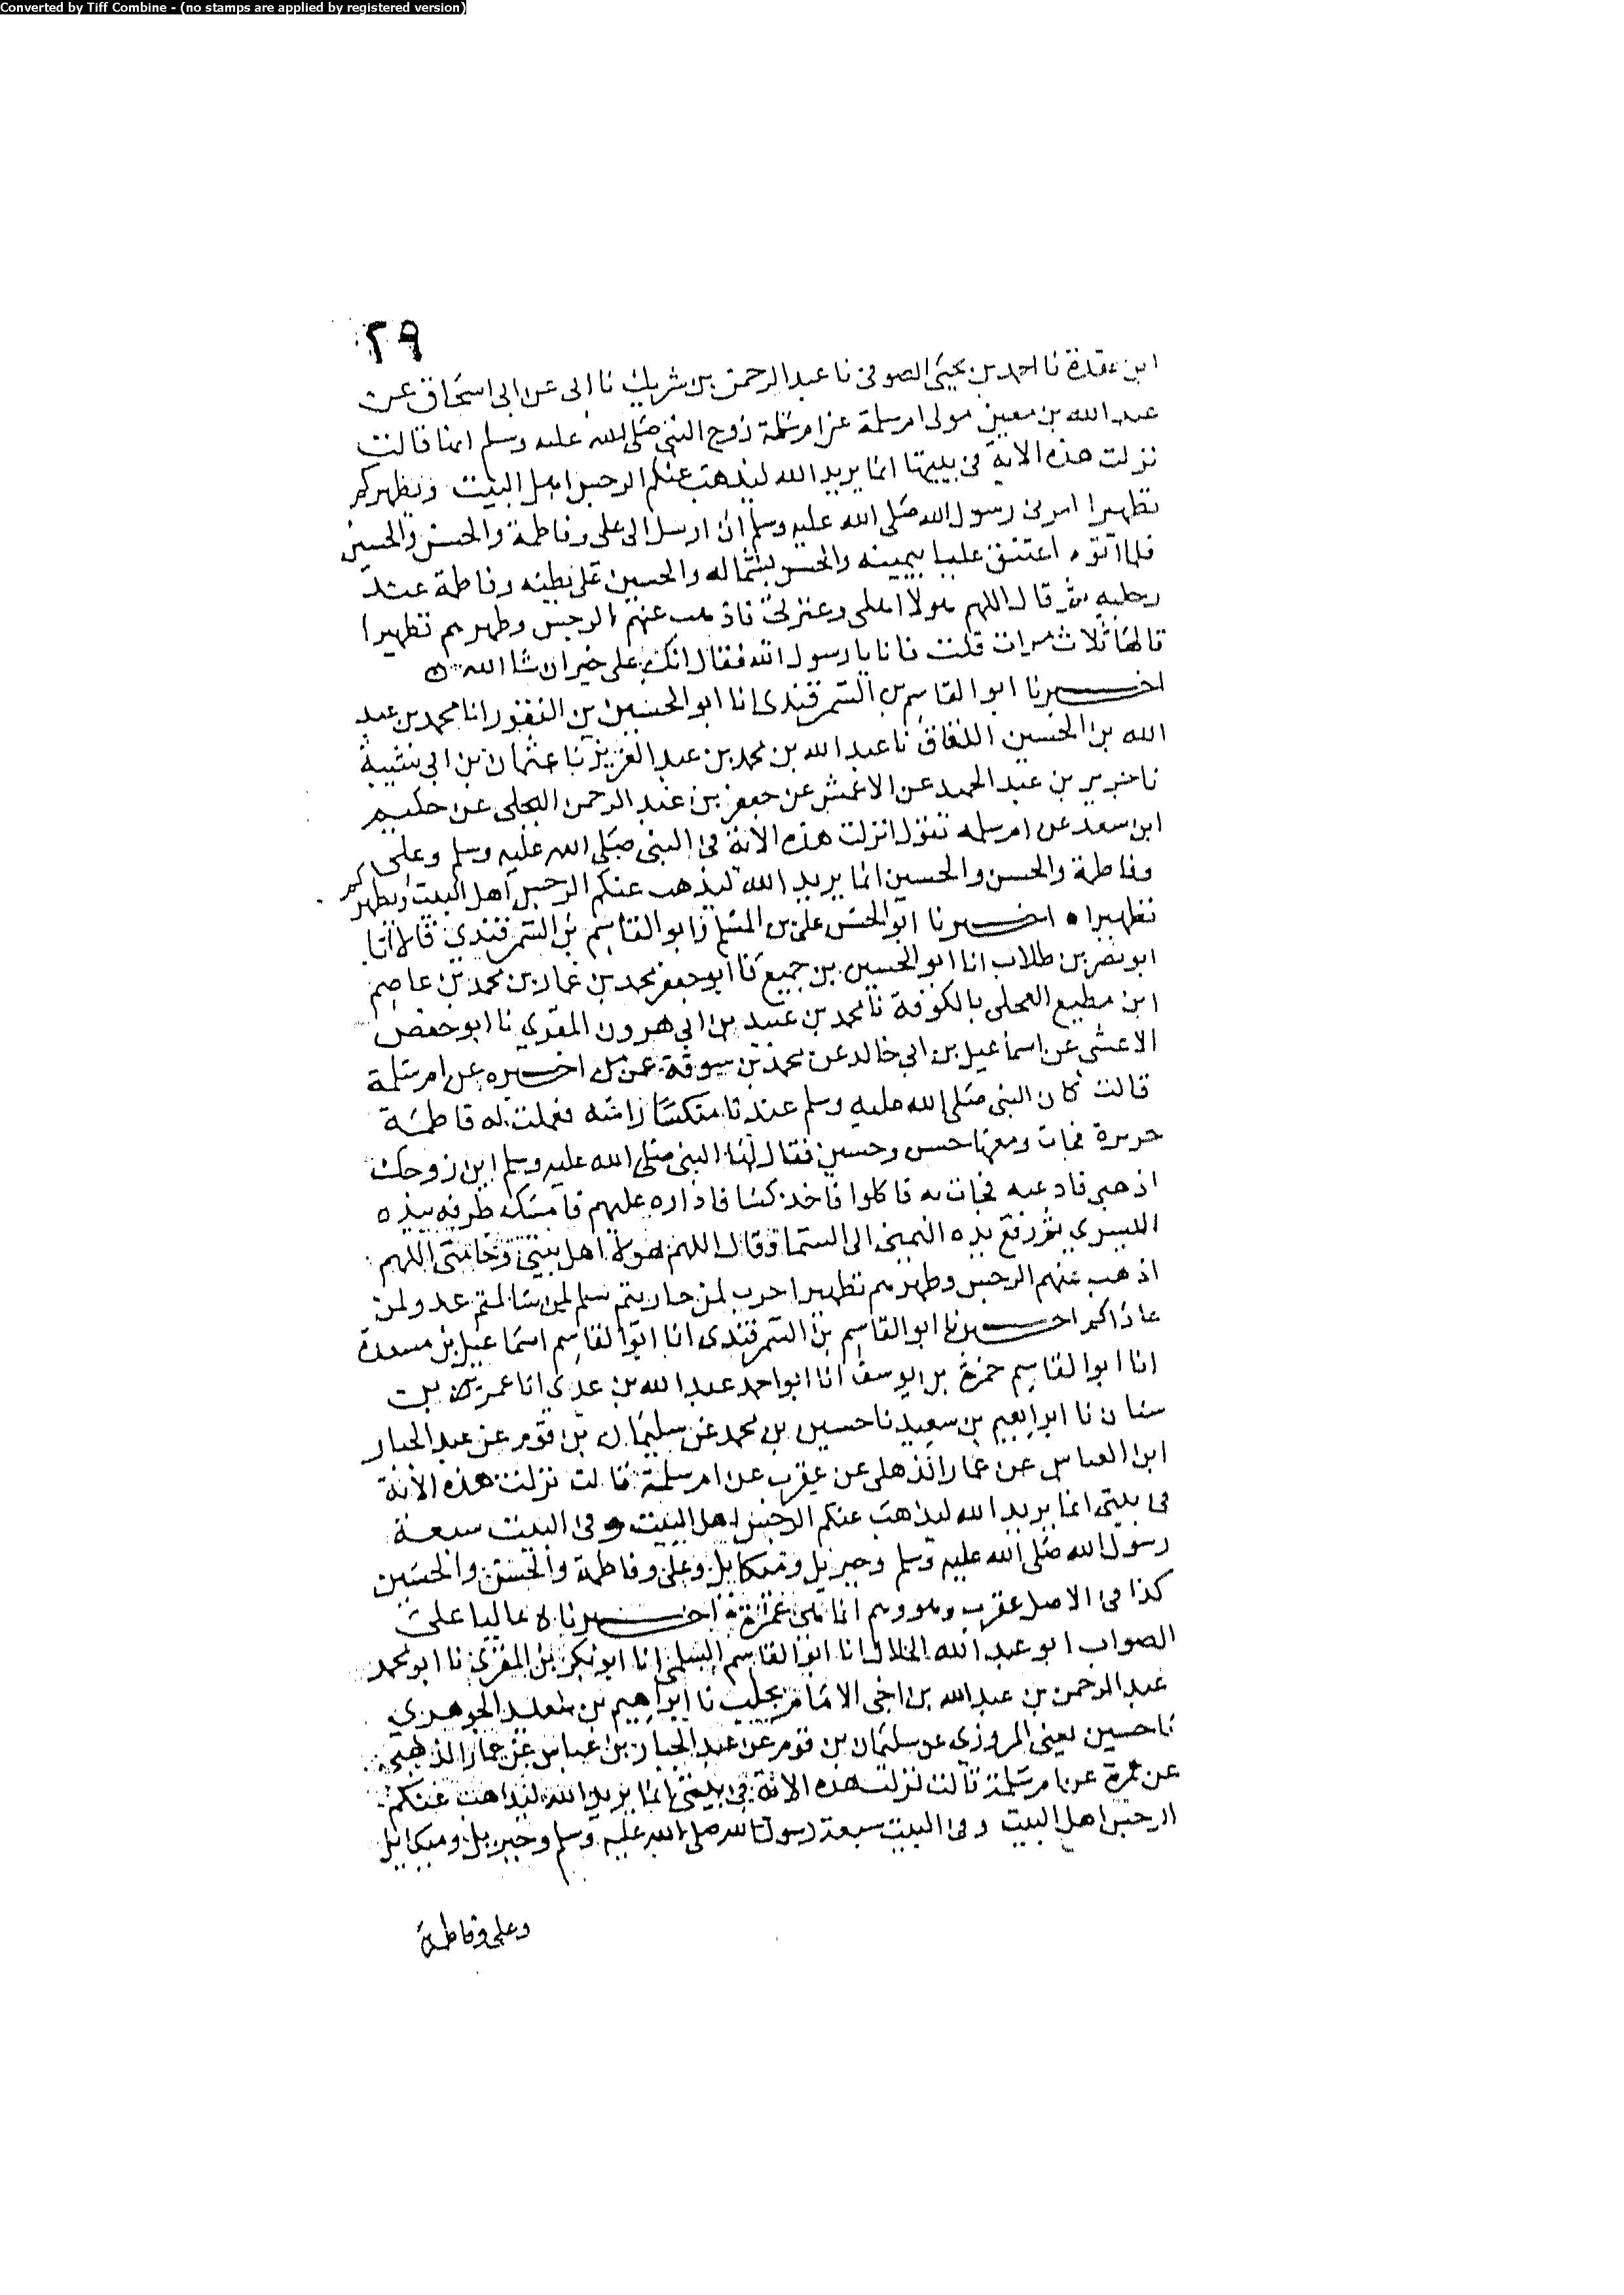 Converted by Tiff Combine - (no stamps are applied by registered version)
٢٩
ابن عقدة نا احمد بن يحيى الصوفى نا عبد الرحمن بن شريك نا ابى عن ابى اسحاق عن
عبد الله بن معين مولى ام سلمة عن ام سلمة زوج النبى صلى الله عليه وسلم انها قالت
نزلت هذه الاية فى بيتها انما يريد الله ليذهب عنكم الرجس اهل البيت ويطهركم
تطهيرا امرنى رسول الله صلى الله عليه وسلم ان ارسل الى على وفاطمة والحسن والحسين
فلما اتوه اعتنق عليا بيمينه والحسن بشماله والحسين على بطنه وفاطمة عند
رجليه ثم قال اللهم هولا اهلى وعترتى فاذهب عنهم الرجس وطهرهم تطهيرا
قالها ثلاث مرات قلت فانا يا رسول الله فقال انك على خير ان شا الله
اخبرنا ابو القاسم بن السمرقندى انا ابو الحسين بن النقور انا محمد بن عبد
الله بن الحسين الدقاق نا عبد الله بن محمد بن عبد العزيز نا عثمان بن ابى شيبة
نا جرير بن عبد الحميد عن الاعمش عن جعفر بن عبد الرحمن البجلى عن حكيم
ابن سعد عن ام سلمه تقول انزلت هذه الاية فى النبى صلى الله عليه وسلم وعلى
وفاطمة والحسن والحسين انما يريد الله ليذهب عنكم الرجس اهل البيت ويطهركم
تطهيرا اخبرنا ابو الحسن على بن المسلم وابو القاسم بن السمرقندى قالا انا
ابو نصر بن طلاب انا ابو الحسين بن جميع نا ابو جعفر محمد بن عمار بن محمد بن عاصم
ابن مطيع العجلى بالكوفة نا محمد بن عبيد بن ابى هرون المقرى نا ابو حفص
الاعشى عن اسماعيل بن ابى خالد عن محمد بن سوقة عمن اخبره عن ام سلمة
قالت كان النبى صلى الله عليه وسلم عندنا منكسا راسه فعملت له فاطمة
حريرة فجات ومعها حسن وحسين فقال لها النبى صلى الله عليه وسلم اين زوجك
اذهبى فادعيه فجات به فاكلوا فاخذ كسا فاداره عليهم فامسك طرفه بيده
اليسرى ثم رفع يده اليمنى الى السما وقال اللهم هولا اهل بيتى وحامتى اللهم
اذهب عنهم الرجس وطهرهم تطهيرا حرب لمن حاربتم سلم لمن سالمتم عدو لمن
عاداكم اخبرنا ابو القاسم بن السمرقندى انا ابو القاسم اسماعيل بن مسعدة
انا ابو القاسم حمزة بن يوسف انا ابو احمد عبد الله بن عدى انا عمر بن
سنان نا ابراهيم بن سعيد نا حسين بن محمد عن سليمان بن قرم عن عبد الجبار
ابن العباس عن عمار الذهلى عن عقرب عن ام سلمة قالت نزلت هذه الاية
فى بيتى انما يريد الله ليذهب عنكم الرجس اهل البيت وفى البيت سبعة
رسول الله صلى الله عليه وسلم وجبريل وميكايل وعلى وفاطمة والحسن والحسين
كذا فى الاصل عقرب وهو وهم انما هى عمرة اخبرناه عاليا على
الصواب ابو عبد الله الخلال انا ابو القاسم السلمى انا ابو بكر بن المقرى نا ابو محمد
عبد الرحمن بن عبد الله بن اخى الامام بحلب نا ابراهيم بن سعيد الجوهرى
نا حسين يعنى المروزى عن سليمان بن قرم عن عبد الجبار بن عباس عن عمار الذهبى
عن عمرة عن ام سلمة قالت نزلت هذه الاية فى بيتى انما يريد الله ليذاهب عنكم
الرجس اهل البيت وفى البيت سبعة رسول الله صلى الله عليه وسلم وجبريل وميكايل
وعلى وفاطمة